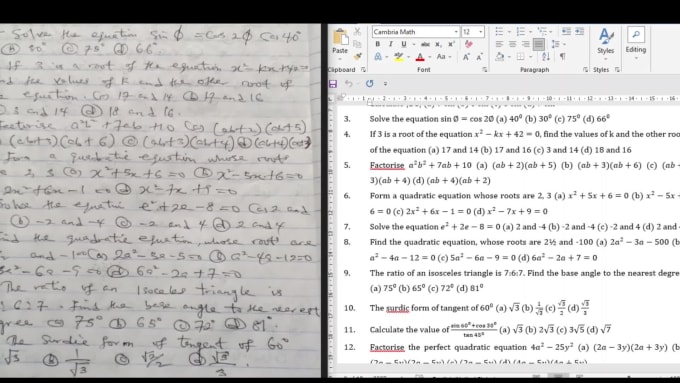 Solve the equation Sin ϕ = Cos 2ϕ (a) 40°
(b) 30° (c) 75° (d) 66°
If 3 is a root of the equation x² - kx + 42 =
nd the values of k and the other root of
equation. (a) 17 and 14 (b) 17 and 16
3 and 14 (d) 18 and 16
Factorise a²b² + 7ab + 10 (a) (ab+2)(ab+5)
(ab+3)(ab+6) (c) (ab+3)(ab+4) (d) (ab+4)(ab+
Form a quadratic equation whose roots
2, 3 (a) x² + 5x + 6 = 0 (b) x² - 5x + 6 = 0
2x² + 6x - 1 = 0 (d) x² - 7x + 9 = 0
Solve the equation e² + 2e - 8 = 0 (a) 2 and
(b) -2 and -4 (c) -2 and 4 (d) 2 and 4
ind the quadratic equation, whose root are
and -100 (a) 2a² - 3a - 5 = 0 (b) a² - 4a - 12 = 0
5a² - 6a - 9 = 0 (d) 6a² - 2a + 7 = 0
The ratio of an Isoceles triangle is
:6:7. Find the base angle to the nearest
gree (a) 75° (b) 65° (c) 72° (d) 81°
The Surdic form of tangent of 60°
√3 (b) 1/√3 (c) √3/2 (d) √3/3
Paste
Clipboard
Cambria Math
12
B I U abc x₂ x²
Font
Paragraph
Styles
Styles
Editing
3. Solve the equation sin Ø = cos 2Ø (a) 40⁰ (b) 30⁰ (c) 75⁰ (d) 66⁰
4. If 3 is root of the equation x² − kx + 42 = 0, find the values of k and the other roo
of the equation (a) 17 and 14 (b) 17 and 16 (c) 3 and 14 (d) 18 and 16
5. Factorise a²b² + 7ab + 10 (a) (ab + 2)(ab + 5) (b) (ab + 3)(ab + 6) (c) (ab +
3)(ab + 4) (d) (ab + 4)(ab + 2)
6. Form a quadratic equation whose roots are 2, 3 (a) x² + 5x + 6 = 0 (b) x² − 5x +
6 = 0 (c) 2x² + 6x − 1 = 0 (d) x² − 7x + 9 = 0
7. Solve the equation e² + 2e − 8 = 0 (a) 2 and -4 (b) -2 and -4 (c) -2 and 4 (d) 2 and
8. Find the quadratic equation, whose roots are 2½ and -100 (a) 2a² − 3a − 500 (b
a² − 4a − 12 = 0 (c) 5a² − 6a − 9 = 0 (d) 6a² − 2a + 7 = 0
9. The ratio of an isosceles triangle is 7:6:7. Find the base angle to the nearest degre
(a) 75⁰ (b) 65⁰ (c) 72⁰ (d) 81⁰
10. The surdic form of tangent of 60⁰ (a) √3 (b) 1/√3 (c) √3/2 (d) √3/3
11. Calculate the value of (sin 60⁰+cos 30⁰)/(tan 45⁰) (a) √3 (b) 2√3 (c) 3√5 (d) √7
12. Factorise the perfect quadratic equation 4a² − 25y² (a) (2a − 3y)(2a + 3y) (b